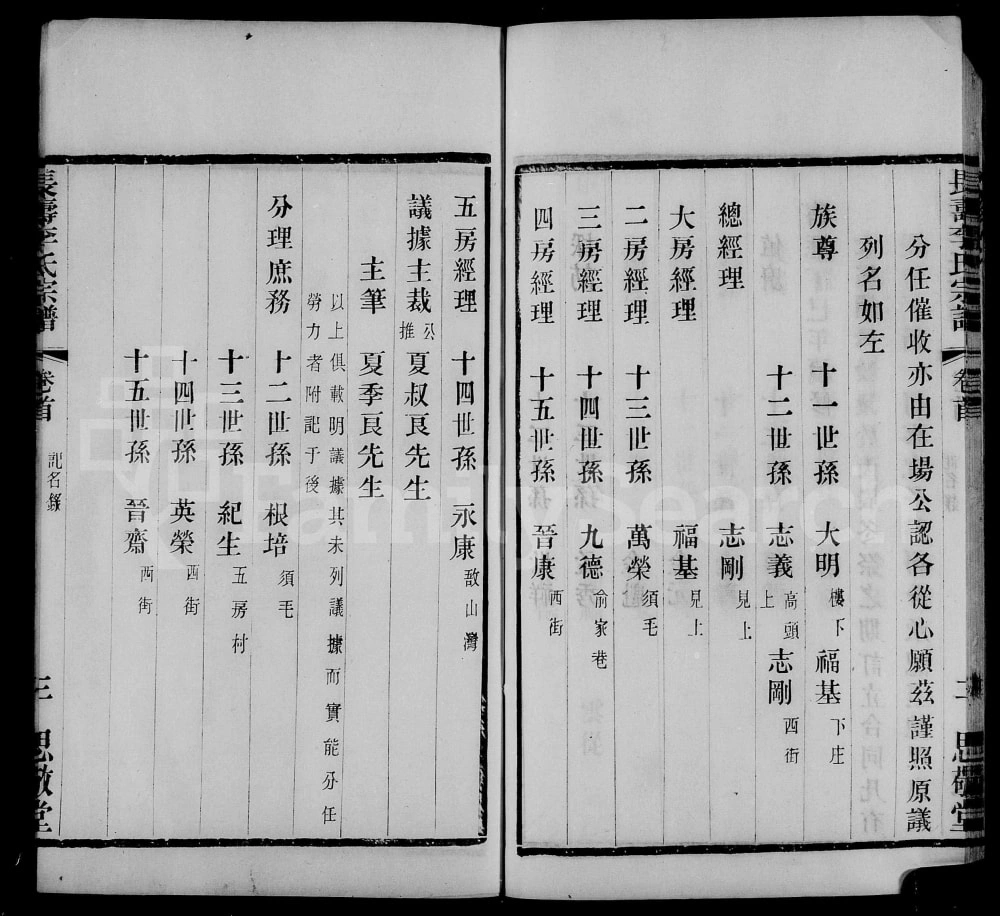 長壽李氏宗譜 卷首 二 思敬堂
分任催收亦由在場公認各從心願茲謹照原議
列名如左
族尊 十一世孫 大明 樓下 福基 下庄
十二世孫 志義 高頭上 志剛 西街
總經理 志剛 見上
大房經理 福基 見上
二房經理 十三世孫 萬榮 須毛
三房經理 十四世孫 九德 俞家巷
四房經理 十五世孫 晉康 西街
五房經理 十四世孫 永康 敔山灣
議據主裁 公推 夏叔良先生
主筆 夏季良先生
以上俱載明議據其未列議據而實能分任
勞力者附記于後
分理庶務 十二世孫 根培 須毛
十三世孫 紀生 五房村
十四世孫 英榮 西街
十五世孫 晉齋 西街
長壽李氏宗譜 卷首 記名錄 三 思敬堂